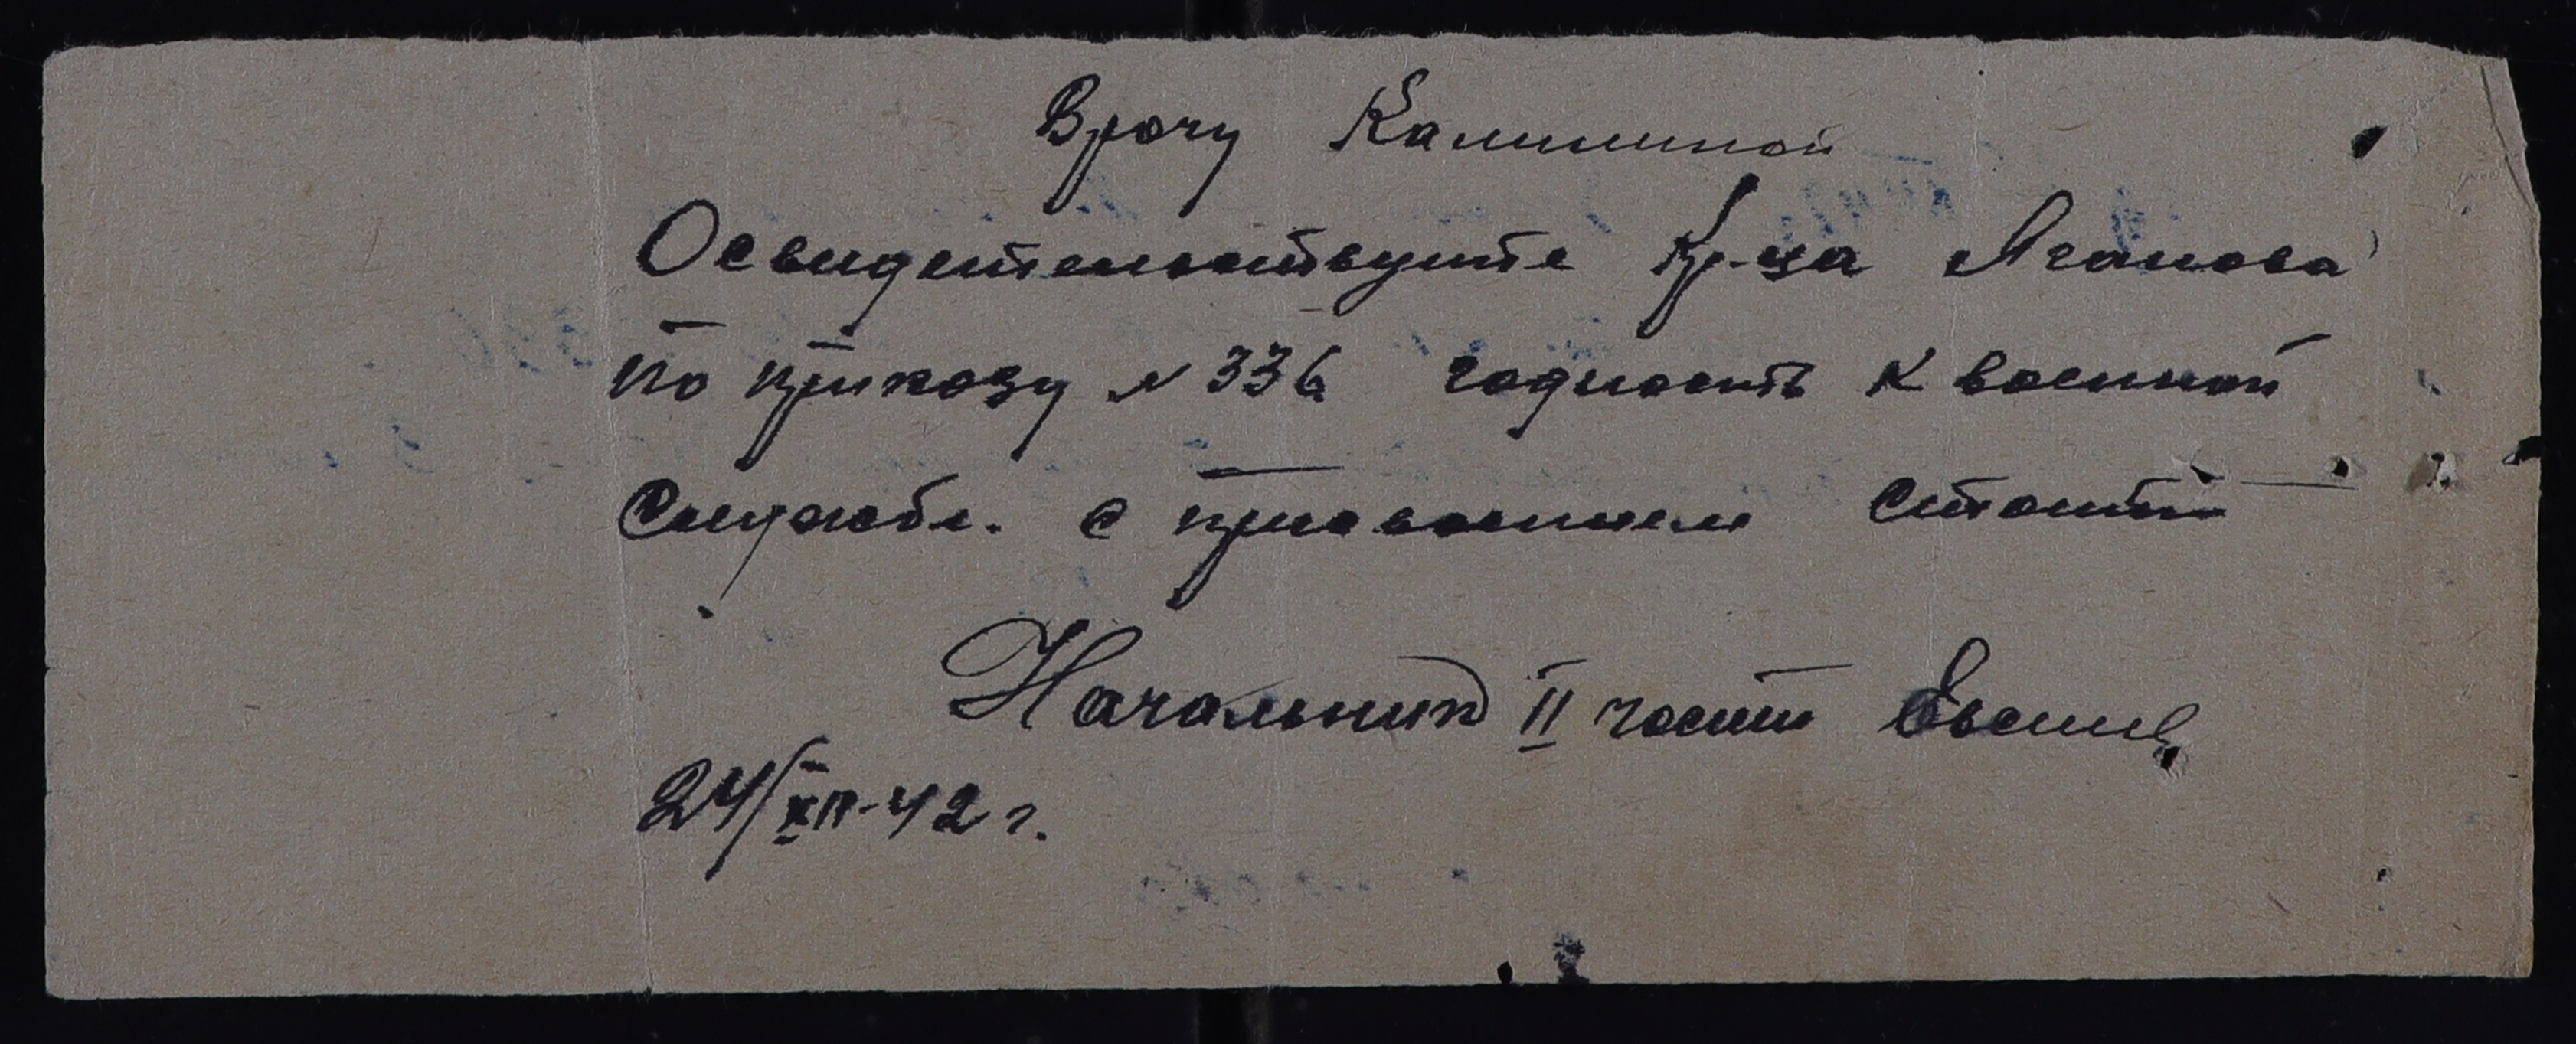 Врачу Калининой
Освидетельствуйте кр-ца Аганова
по приказу № 336 годность к военной
службе. с присвоением статьи
Начальник II части
24/XII-42 г.